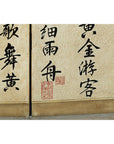 黄金游客
細雨舟
歌舞黄